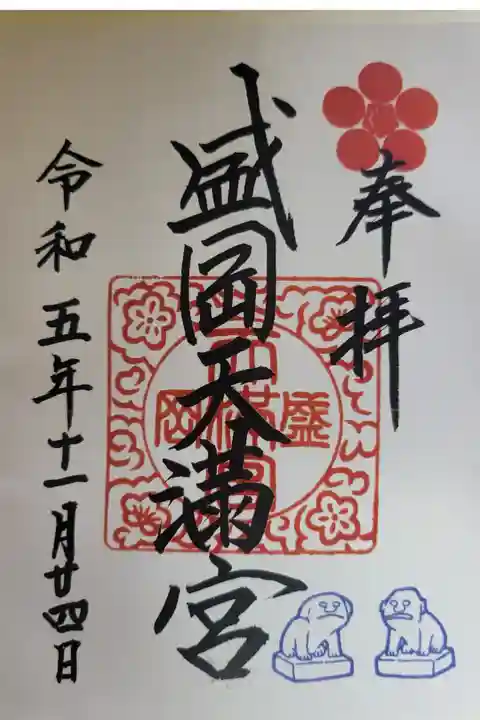 奉拝
盛岡天満宮
盛岡
天満宮
令和五年十一月廿四日